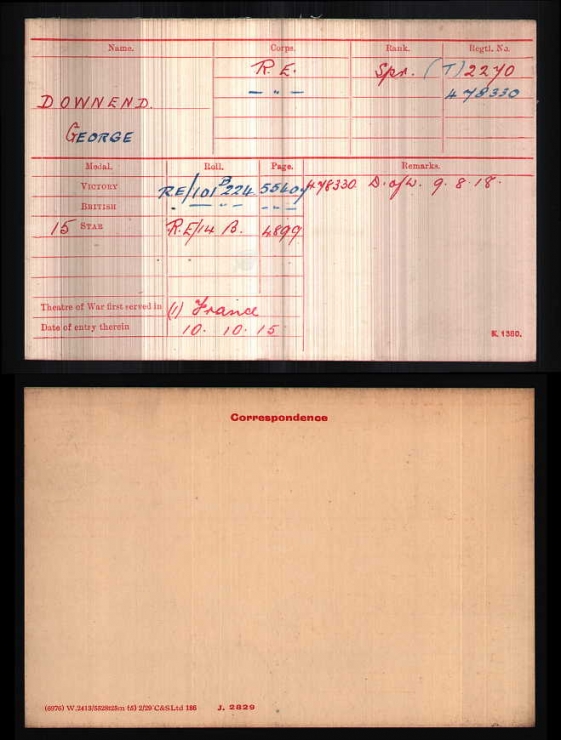 Name. Corps. Rank. Regtl. No.
R. E. Spr. (T) 2270
— " — 478330
DOWNEND.
GEORGE
Medal. Roll. Page. Remarks.
VICTORY RE/101 B224 55604 478330 D. of W. 9. 8. 18.
BRITISH — " — — " —
15 STAR R.E/14 B. 4899
Theatre of War first served in (1) France
Date of entry therein 10. 10. 15
K. 1380.
Correspondence
(6976) W.2413/ C&S Ltd 186 J. 2829